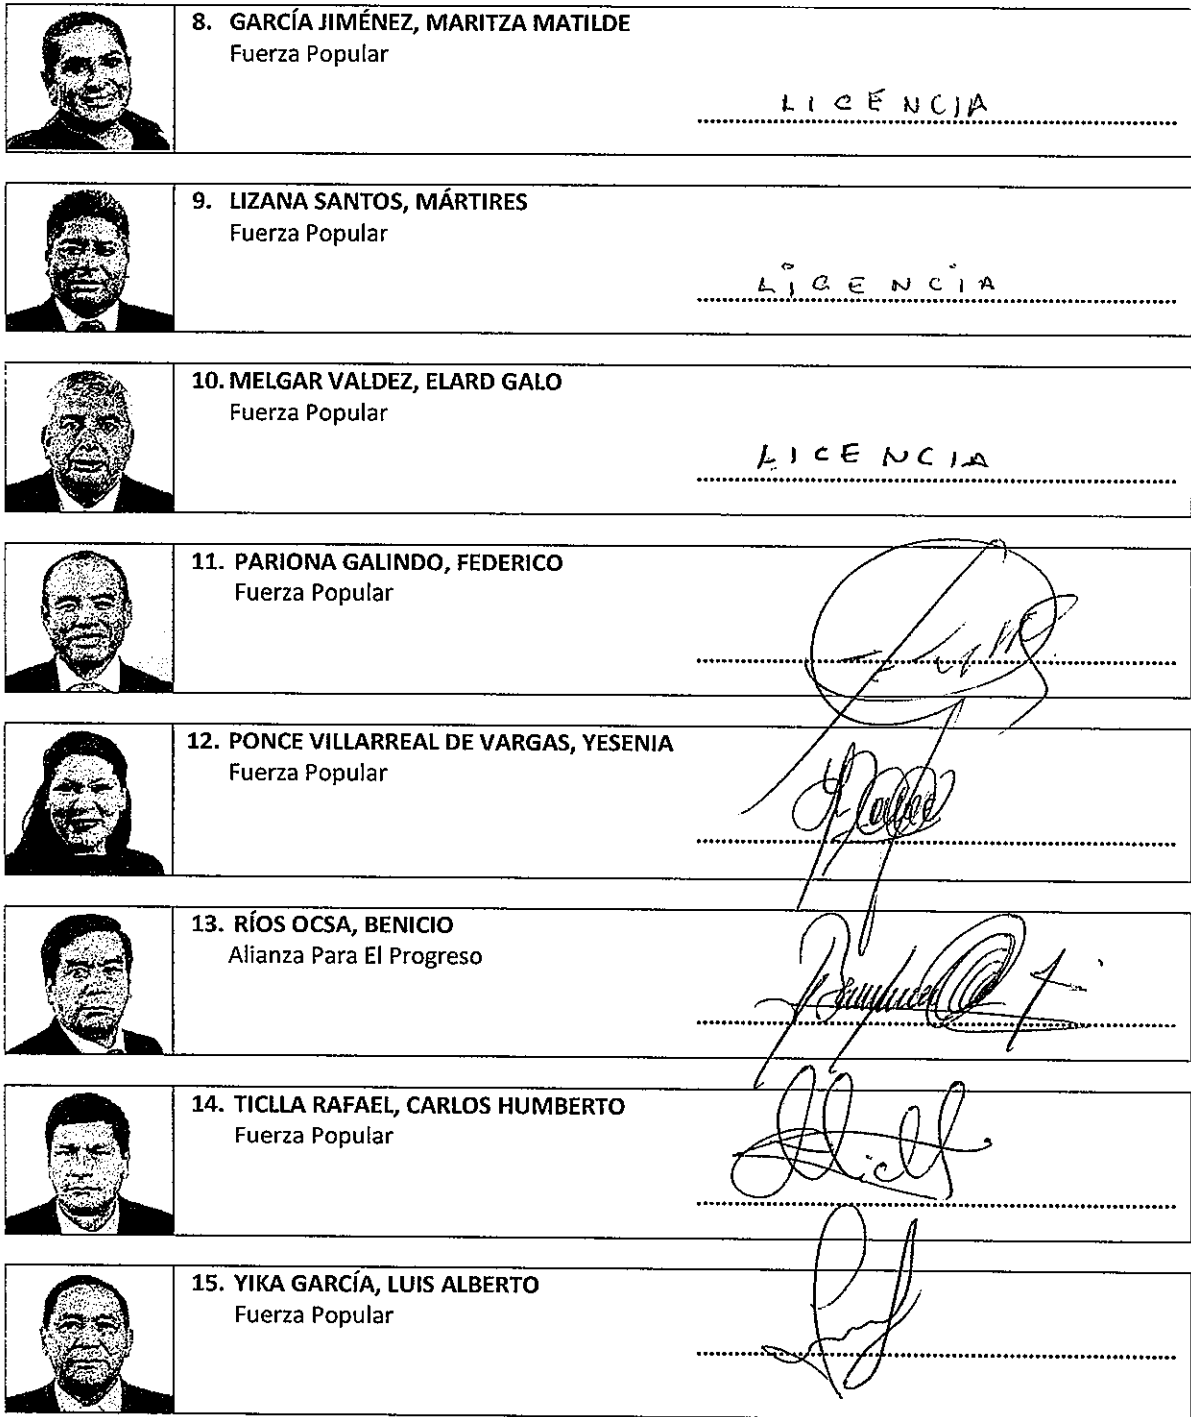 8. GARCÍA JIMÉNEZ, MARITZA MATILDE
Fuerza Popular
LICENCIA
9. LIZANA SANTOS, MÁRTIRES
Fuerza Popular
LICENCIA
10. MELGAR VALDEZ, ELARD GALO
Fuerza Popular
LICENCIA
11. PARIONA GALINDO, FEDERICO
Fuerza Popular
12. PONCE VILLARREAL DE VARGAS, YESENIA
Fuerza Popular
13. RÍOS OCSA, BENICIO
Alianza Para El Progreso
14. TICLLA RAFAEL, CARLOS HUMBERTO
Fuerza Popular
15. YIKA GARCÍA, LUIS ALBERTO
Fuerza Popular